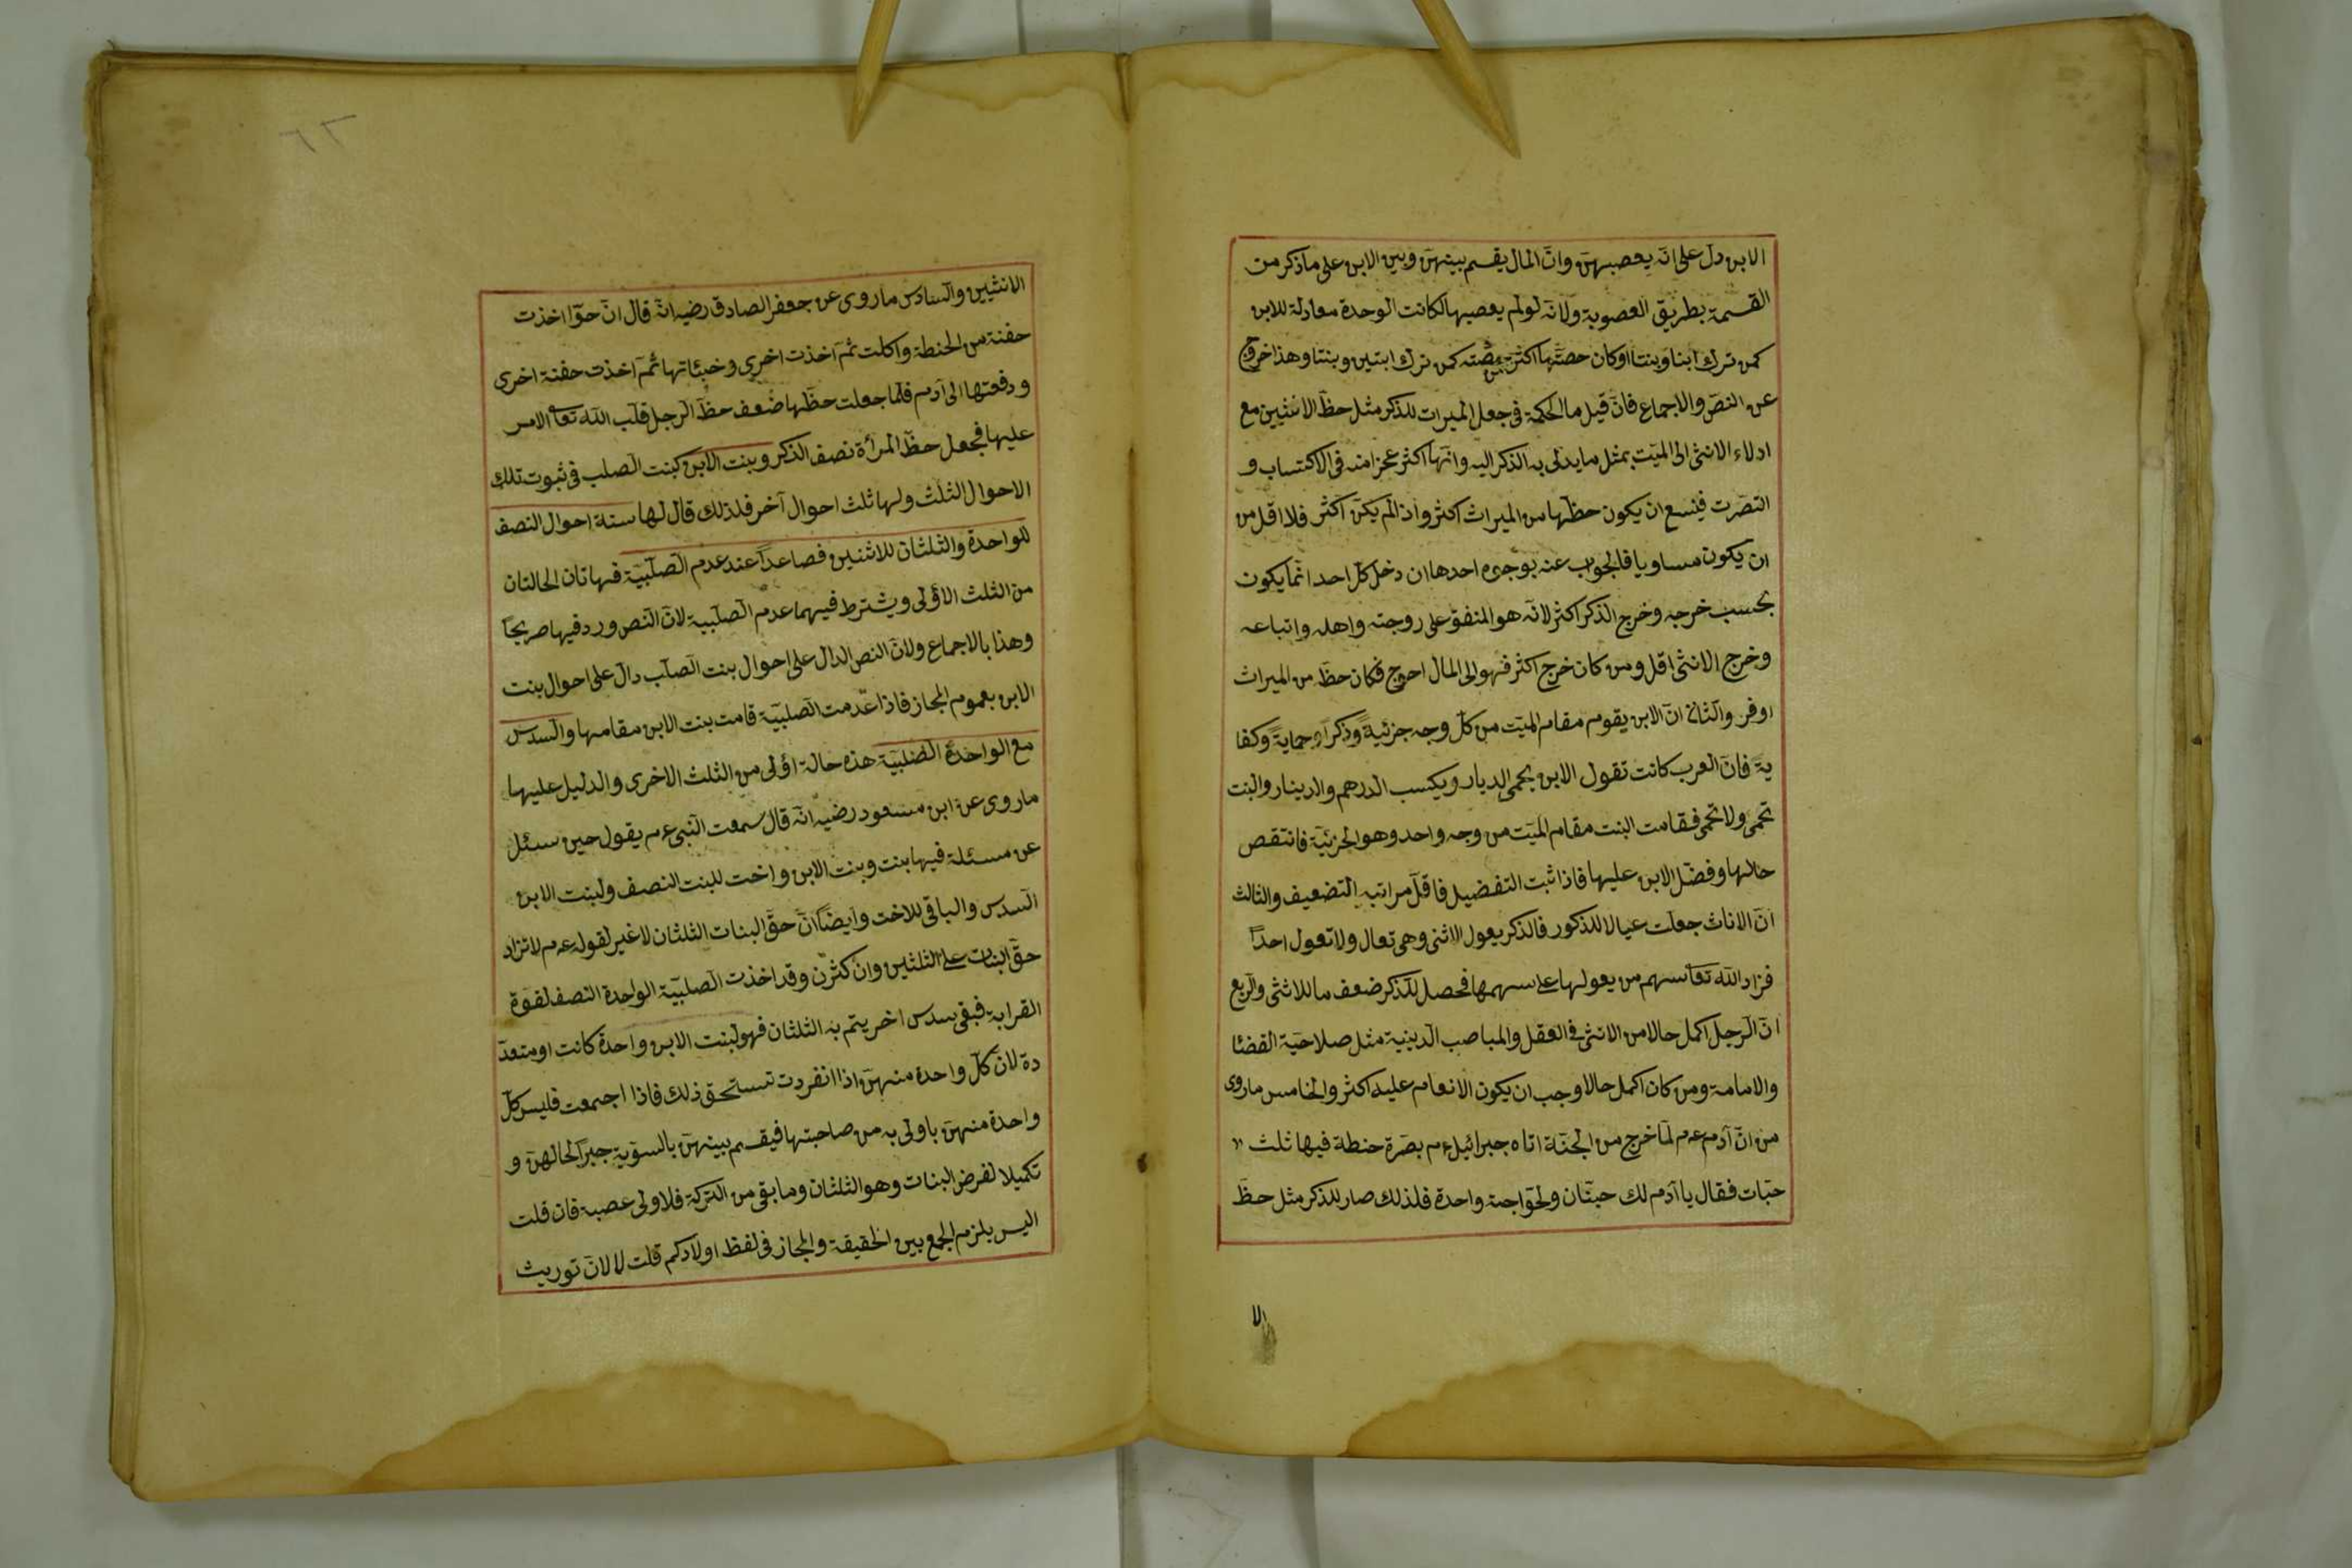 الابن دل على انّه يعصبهنّ وانّ المال يقسم بينهنّ وبين الابن على ما ذكر من
القسمة بطريق العصوبة ولانّه لولم يعصبها لكانت الوحدة معادلة للابن
كمن ترك ابنا وبنتا اوكان حصّتها اكثر من حصّته كمن ترك ابنين وبنتا وهذا خروج
عن النصّ والاجماع فانّ قيل ما الحكمة فى جعل الميراث للذكر مثل حظّ الانثيين مع
ادلاء الانثى الى الميّت بمثل ما يدلى به الذكر اليه وانّها اكثر عجزا منه فى الاكتساب و
التصرّت فينبع ان يكون حظّها من الميراث اكثر وان لم يكن اكثر فلا اقل من
ان يكون مساويا فالجواب عنه بوجوه احدها ان دخل كلّ احد انّما يكون
بحسب خرجه وخرج الذكر اكثر لانّه هو المنفق على زوجته واهله واتباعه
وخرج الانثى اقل ومن كان خرج اكثر فهو الى المال احوج فكان حظّ من الميراث
اوفر والثانى انّ الابن يقوم مقام الميّت من كلّ وجه جزئيةً وذكراً وحمايةً وكفا
يةً فانّ العرب كانت تقول الابن يحمى الديار ويكسب الدرهم والدينار والبنت
تحمى ولا تحمى فقامت البنت مقام الميّت من وجه واحد وهو الجزئيّة فانتقص
حالها وفضّل الابن عليها فاذا ثبت التفضيل فاقلّ مراتبه التضعيف والثالث
انّ الاناث جعلت عيالا للذكور فالذكر يعول الانثى وهى تعال ولا تعول احداً
فزاد اللّه تعا سهم من يعولها على سهمها فحصل للذّكر ضعف ما للانثى والرّبع
انّ الرّجل اكمل حالا من الانثى فى العقل والمباصب الدينية مثل صلاحيّة القضئا
والامامة ومن كان اكمل حالا وجب ان يكون الانعام عليه اكثر والخامس ماروى
من انّ آدم عم لمّا خرج من الجنّة اتاه جبرائيل عم بصّرة حنطة فيها ثلث
حبّات فقال يا آدم لك حبّتان ولحوّا حبة واحدة فلذلك صار للذكر مثل حظّ
الا
٦٣
الانثيين والسادس ماروى عن جعفر الصادق رضيه انّه قال انّ حوّا اخذت
حفنة من الحنطة واكلت ثمّ اخذت اخرى وخبئاتها ثمّ اخذت حفنة اخرى
ودفعتها الى آدم فلما جعلت حظّها ضعف حظّ الرجل قلب اللّه تعا الامر
عليها فجعل حظّ المرأة نصف الذكر وبنت الابن كبنت الصلب فى ثبوت تلك
الاحوال الثلث ولها ثلث احوال آخر فلذلك قال لها ستة احوال النصف
للواحدة والثلثان للاثنين فصاعداً عند عدم الصّلبيّة فهاتان الحالتان
من الثلث الاؤلى ويشترط فيهما عدم الصلبية لانّ النص ورد فيها صريحاً
وهذا بالاجماع ولانّ النص الدال على احوال بنت الصلب دالّ على احوال بنت
الابن بعموم المجاز فاذا عدمت الصلبيّة قامت بنت الابن مقامها والسدس
مع الواحدة الصّلبيّة هذه حالة اؤلى من الثلث الاخرى والدليل عليها
ماروى عن ابن مسعود رضيه انّه قال سمعت النّبى عم يقول حين سئل
عن مسئلة فيها بنت وبنت الابن واخت للبنت النصف ولبنت الابن
السدس والباقى للاخت وايضاً انّ حقّ البنات الثلثان لا غير لقوله عم لا تزاد
حقّ البنات على الثلثين وان كثرن وقد اخذت الصلبيّة الواحدة النصف لقوّة
القرابة فبقى سدس اخر يتم به الثلثان فهو لبنت الابن واحدة كانت او متعدّ
دة لان كلّ واحدة منهنّ اذا انفردت تستحق ذلك فاذا اجتمعت فليس كلّ
واحدة منهنّ باولى به من صاحبتها فيقسم بينهنّ بالسّويّة جبرا لحالهنّ و
تكميلا لفرض البنات وهو الثلثان وما بقى من التركة فلاولى عصبة فان قلت
اليس يلزم الجمع بين الحقيقة والمجاز فى لفظ اولادكم قلت لا لانّ توريث